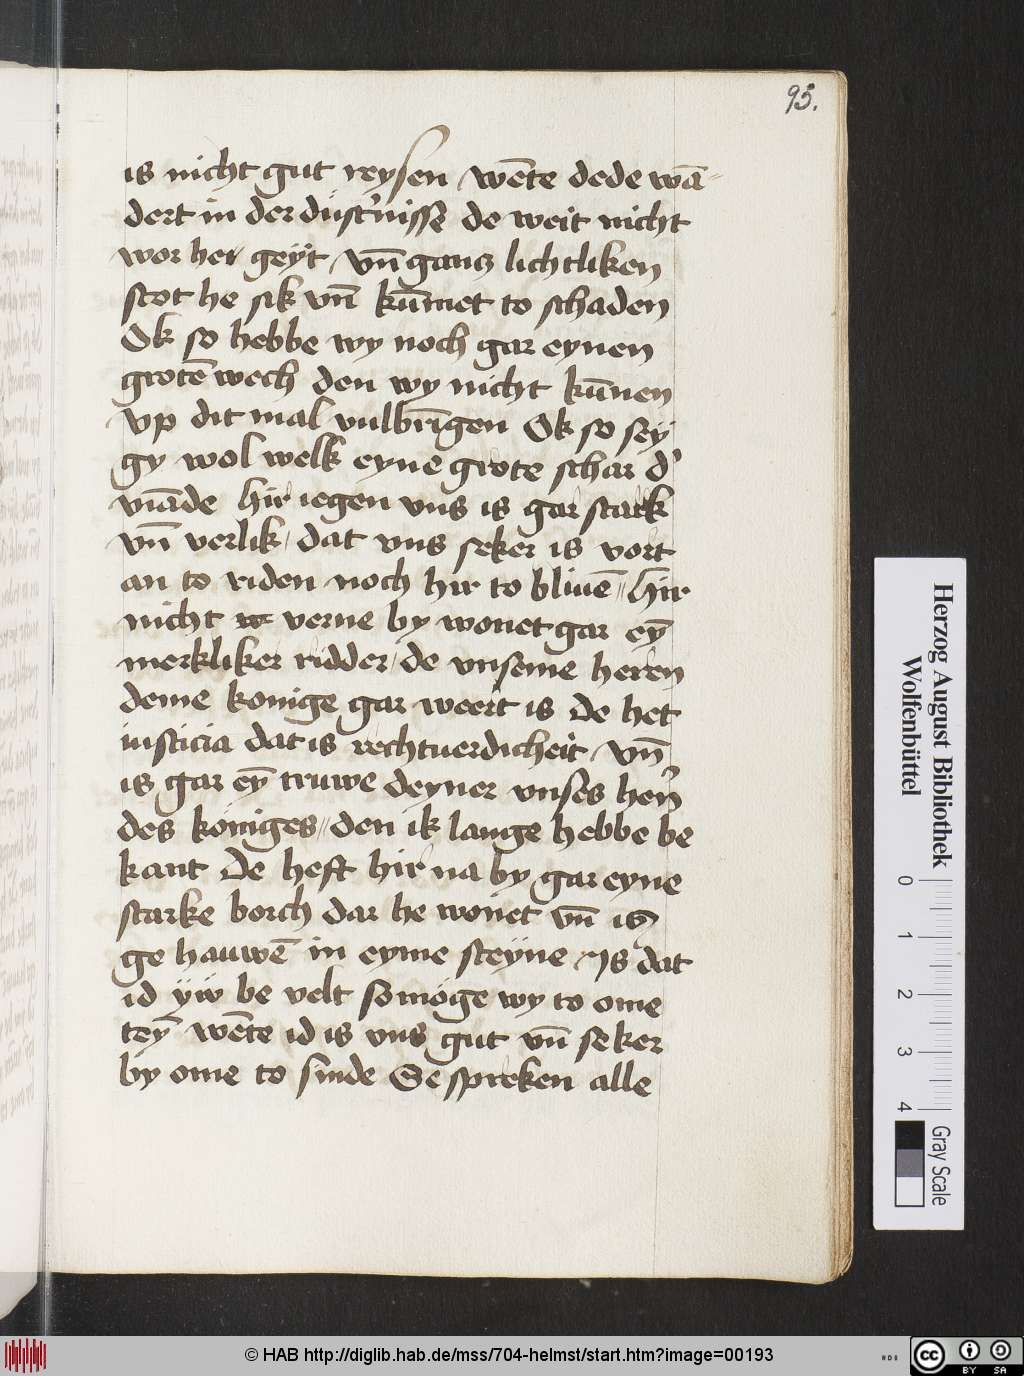 95.
is nicht gut reysen / wēte dede wā=
dert in der düst'nisse de weit nicht
wor her geÿt / vn̄ gancz lichtliken
stot he sik vn̄ kūmet to schaden
Ok so hebbe wy noch gar eynen
grotē wech den wy nicht kūnen
vp dit mal vulbrīgen Ok so sey
gy wol welk eyne grote schar d'
viāde hir iegen vns is gar stark
vn̄ verlik / dat vns seker is vort
an to riden noch hir to bliuē // hir
nicht verne by wonet gar eȳ
merkliker ridder / de vnseme heren
deme konige gar weert is De het
iusticia dat is rechtuerdicheit / vn̄
is gar eȳ truwe deyner vnses her̄
des koniges // den ik lange hebbe be
kant De heft hir na by gar eyne
starke borch dar he wonet vn̄ is
ge hauwē in eyme steyne Is dat
id ÿw be velt so moge wy to ome
teȳ wēte id is vns gut vn̄ seker
by ome to sinde Se spreken alle
Herzog August Bibliothek
Wolfenbüttel
0 1 2 3 4
Gray Scale
© HAB http://diglib.hab.de/mss/704-helmst/start.htm?image=00193
cc BY SA